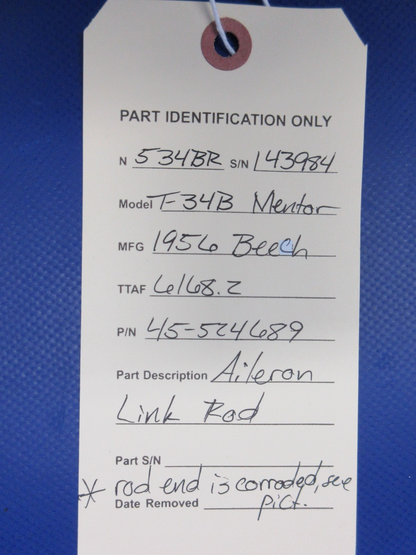 PART IDENTIFICATION ONLY
N 534BR S/N 143984
Model T-34B Mentor
MFG 1956 Beech
TTAF 6168.2
P/N 45-524689
Part Description Aileron
Link Rod
Part S/N
* rod end is corroded, see
Date Removed pict.